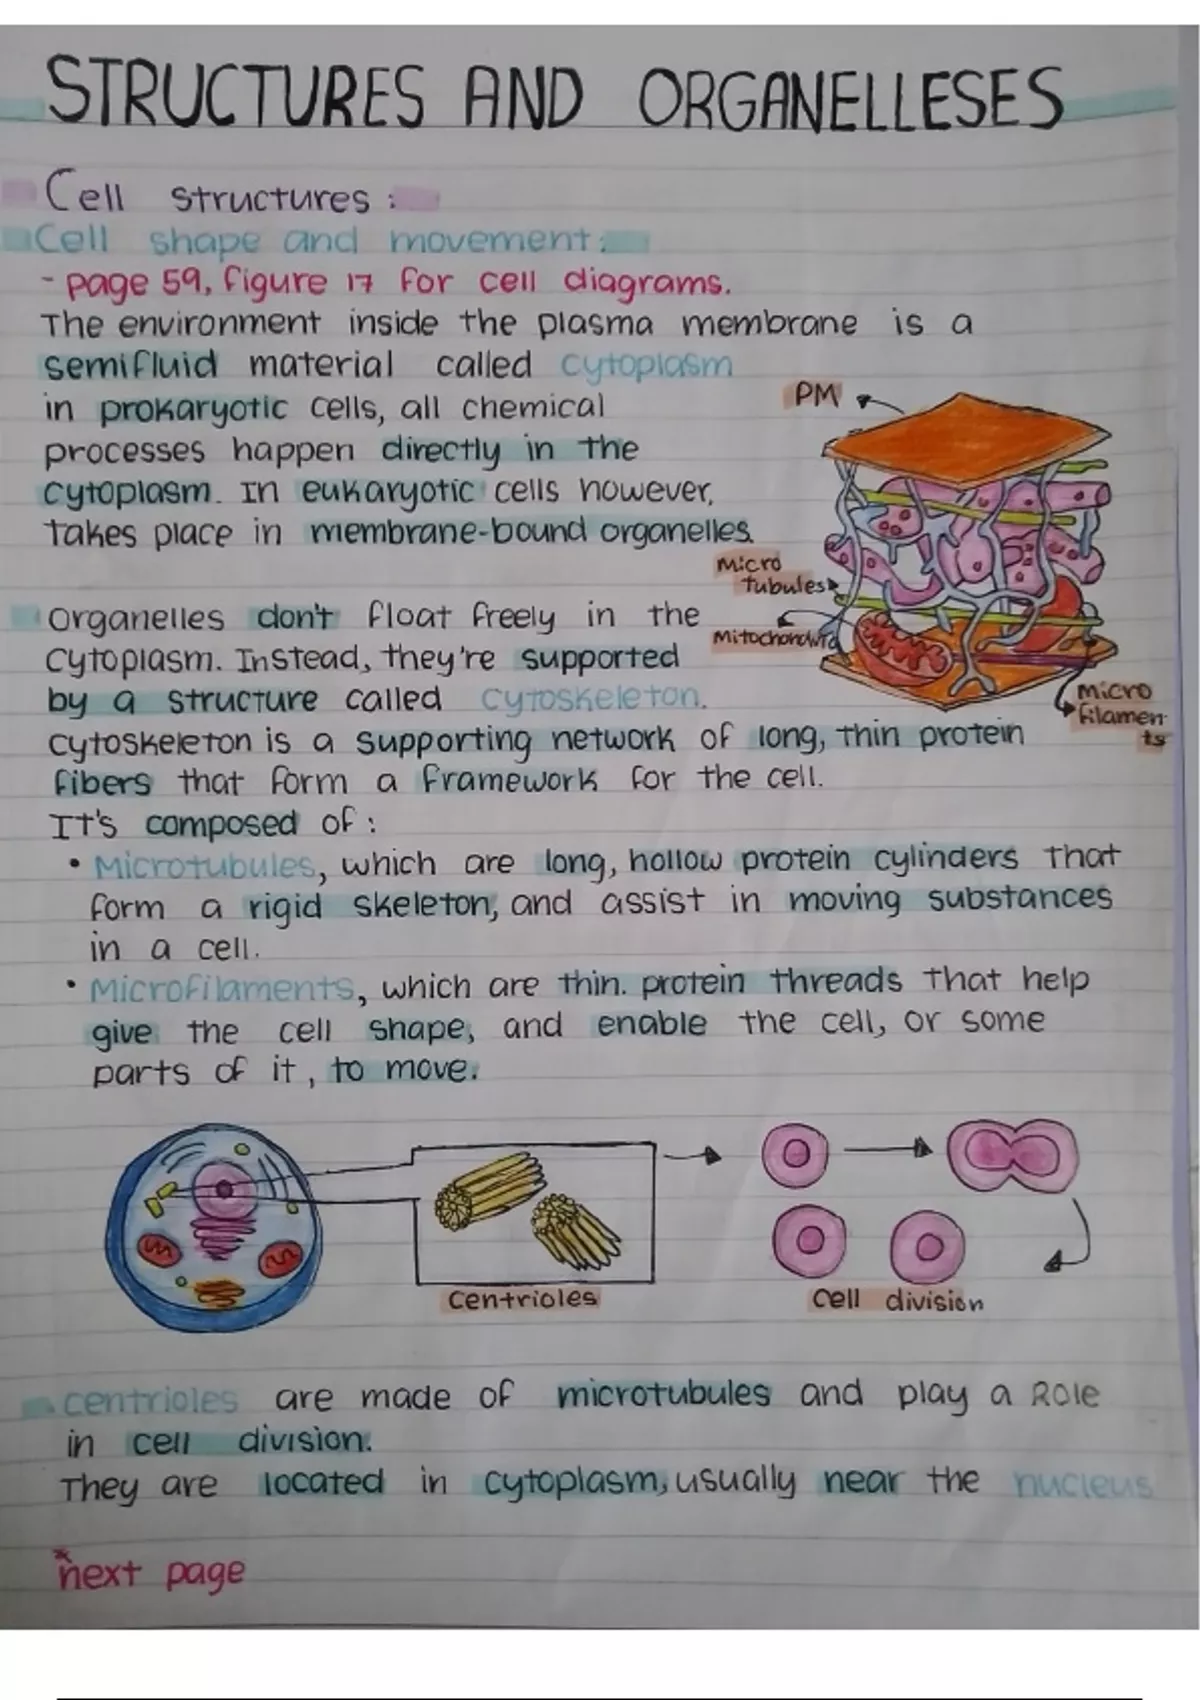 STRUCTURES AND ORGANELLESES
Cell structures:
Cell shape and movement:
- page 59, figure 17 for cell diagrams.
The environment inside the plasma membrane is a
semifluid material called cytoplasm
in prokaryotic cells, all chemical
processes happen directly in the
cytoplasm. In eukaryotic cells however,
takes place in membrane-bound organelles.
PM
Micro
tubules
Mitochondria
micro
filamen
ts
Organelles don't float freely in the
cytoplasm. Instead, they're supported
by a structure called cytoskeleton.
cytoskeleton is a supporting network of long, thin protein
fibers that form a framework for the cell.
It's composed of:
• Microtubules, which are long, hollow protein cylinders that
form a rigid skeleton, and assist in moving substances
in a cell.
• Microfilaments, which are thin. protein threads that help
give the cell shape, and enable the cell, or some
parts of it, to move.
Centrioles
Cell division
centrioles are made of microtubules and play a Role
in cell division.
They are located in cytoplasm, usually near the nucleus
*next page